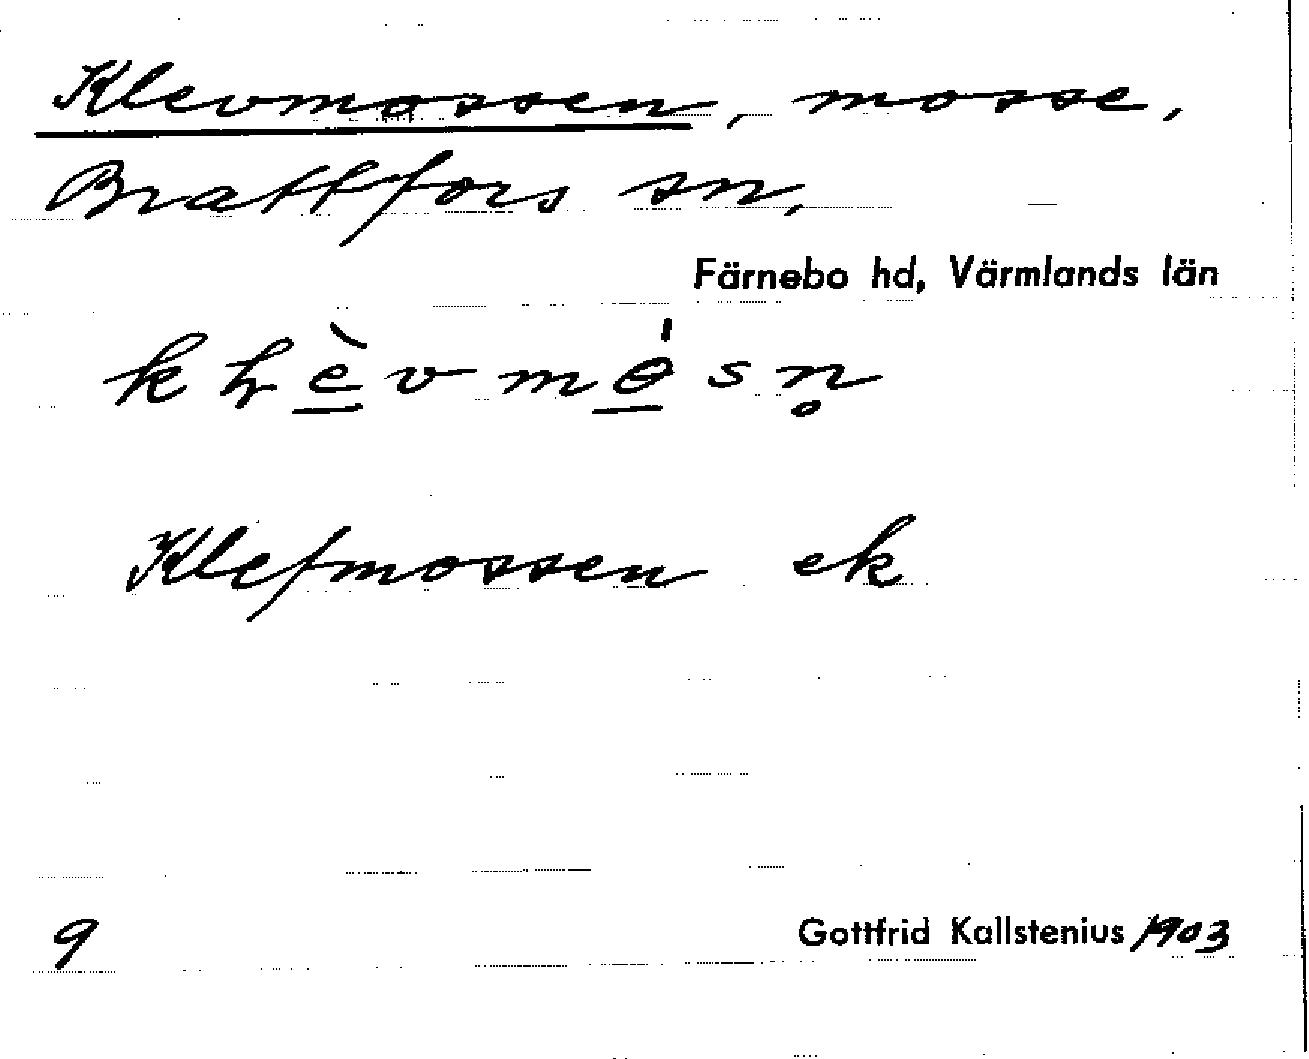 Klevmossen, mosse,
Brattfors sn,
Färnebo hd, Värmlands län
kḷè̱vmɵ̱́sn̥
Klefmossen ek
9
Gottfrid Kallstenius 1903